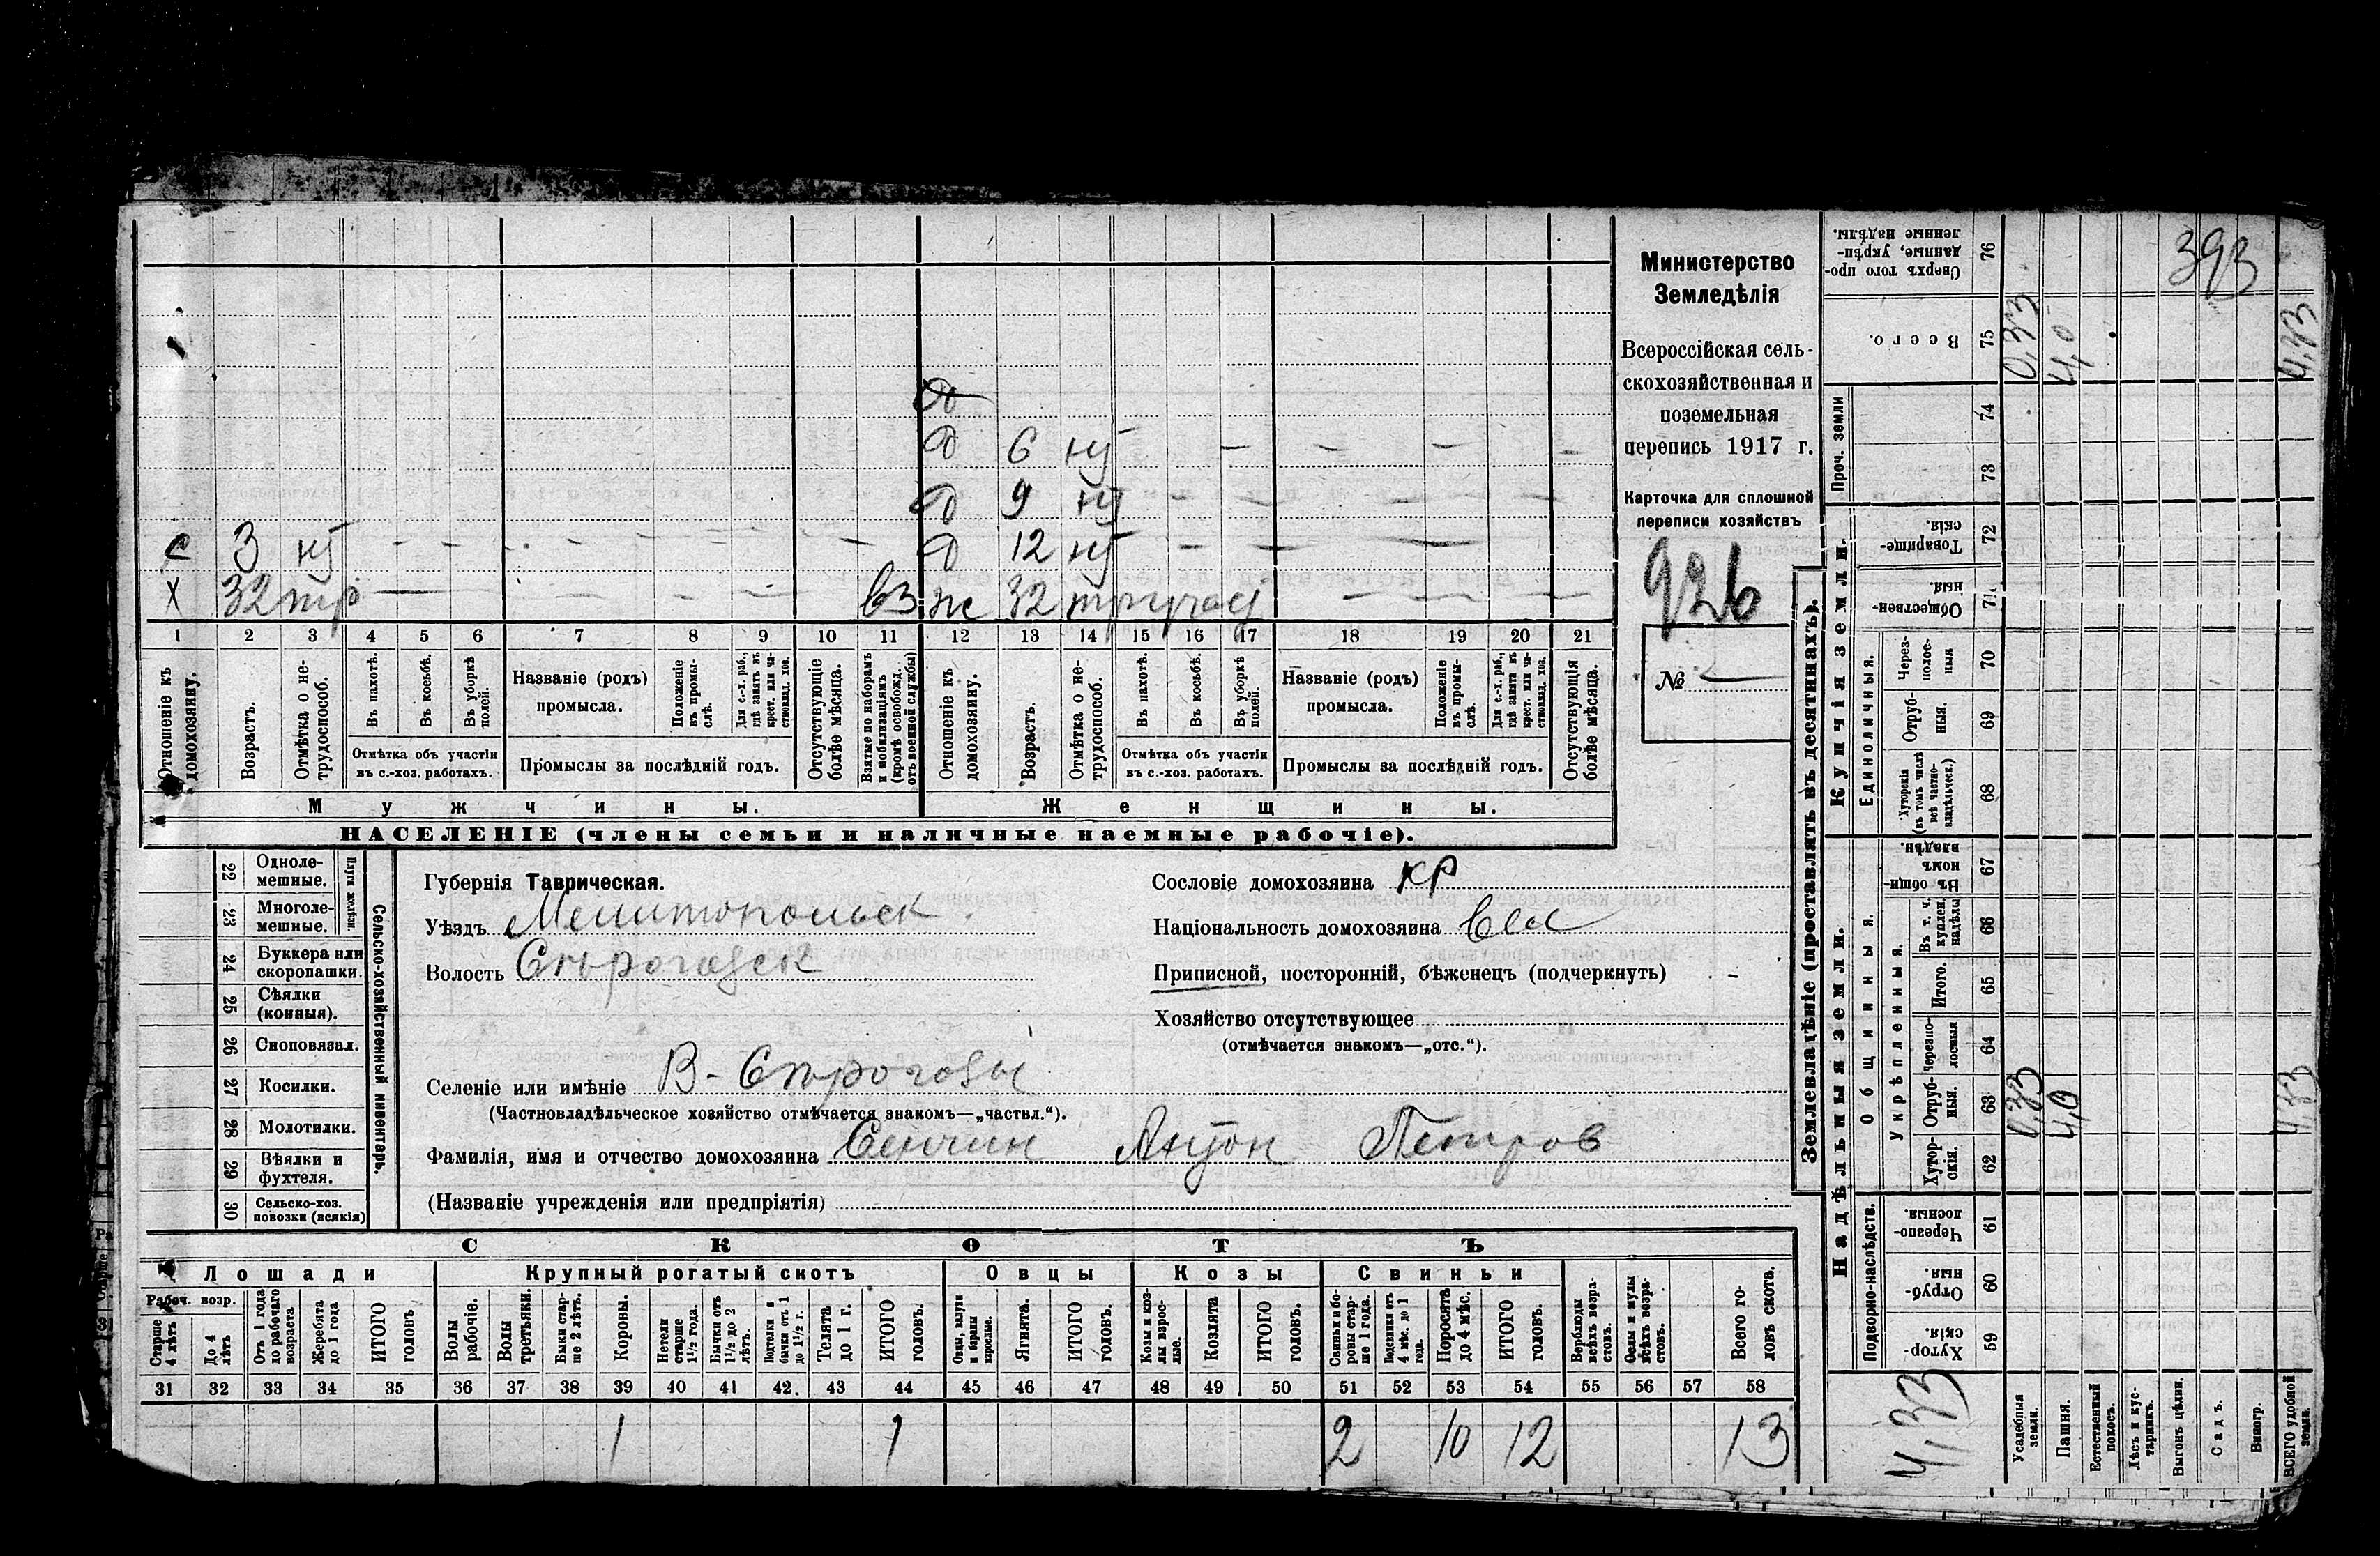 с 3 нт - - - - - - - -
х 32 тр - - - - - - вз
д
д 6 нт - - - -
д 9 нт - - - -
д 12 нт - - -
ж 32 тр - - -
1 2 3 4 5 6 7 8 9 10 11 12 13 14 15 16 17 18 19 20 21
Отношеніе къ домохозяину.
Возрастъ.
Отмѣтка о нетрудоспособ.
Въ пахотѣ.
Въ косьбѣ.
Въ уборкѣ полей.
Отмѣтка объ участіи
въ с.-хоз. работахъ.
Названіе (родъ)
промысла.
Положеніе въ промыслѣ.
Для с.-х. раб., гдѣ занятъ въ крест. или частновлад. хоз.
Промыслы за послѣдній годъ.
Отсутствующіе болѣе мѣсяца.
Взятые по наборамъ и мобилизаціямъ (кромѣ освобожд. отъ военной службы)
Отношеніе къ домохозяину.
Возрастъ.
Отмѣтка о нетрудоспособ.
Въ пахотѣ.
Въ косьбѣ.
Въ уборкѣ полей.
Отмѣтка объ участіи
въ с.-хоз. работахъ.
Названіе (родъ)
промысла.
Положеніе въ промыслѣ.
Для с.-х. раб., гдѣ занята въ крест. или частновлад. хоз.
Промыслы за послѣдній годъ.
Отсутствующія болѣе мѣсяца.
Мужчины.
Женщины.
НАСЕЛЕНІЕ (члены семьи и наличные наемные рабочіе).
Министерство
Земледѣлія
Всероссійская сель-
скохозяйственная и
поземельная
перепись 1917 г.
Карточка для сплошной
переписи хозяйствъ
926
№ —
Сельско-хозяйственный инвентарь.
Плуги желѣзн.
22 Одноле-
мешные.
23 Многоле-
мешные.
24 Буккера или
скоропашки.
25 Сѣялки
(конныя).
26 Сноповязал.
27 Косилки.
28 Молотилки.
29 Вѣялки и
фухтеля.
30 Сельско-хоз.
повозки (всякія)
Губернія Таврическая.
Уѣздъ Мелитопольск
Волость Сѣрогозск
Селеніе или имѣніе В-Сѣрогозы
(Частновладѣльческое хозяйство отмѣчается знакомъ—„частвл.“).
Фамилія, имя и отчество домохозяина Сенчин Антон Петров
(Названіе учрежденія или предпріятія)
Сословіе домохозяина кр
Національность домохозяина
Приписной, посторонній, бѣженецъ (подчеркнуть) -
Хозяйство отсутствующее
(отмѣчается знакомъ—„отс.“).
СКОТЪ
Лошади
Рабоч. возр.
Старше 4 лѣтъ
До 4 лѣтъ
Отъ 1 года до рабочаго возраста
Жеребята до 1 года
ИТОГО головъ
Крупный рогатый скотъ
Волы рабочіе.
Волы третьяки.
Быки старше 2 лѣтъ.
Коровы.
Нетели старше 1½ года.
Бычки отъ 1½ до 2 лѣтъ.
Подтелки и бычки отъ 1 до 1½ г.
Телята до 1 г.
ИТОГО головъ.
Овцы
Овцы, валухи и бараны взрослые.
Ягнята.
ИТОГО головъ.
Козы
Козы и козлы взрослые.
Козлята
ИТОГО головъ.
Свиньи
Свиньи и боровы старше 1 года.
Подсвинки отъ 4 мѣс. до 1 года.
Поросята до 4 мѣс.
ИТОГО головъ.
Верблюды всѣхъ возрастовъ.
Ослы и мулы всѣхъ возрастовъ.
Всего головъ скота.
31 32 33 34 35 36 37 38 39 40 41 42. 43 44 45 46 47 48 49 50 51 52 53 54 55 56 57 58
1 1 2 10 12 13
Землевладѣніе (проставлять въ десятинахъ).
Надѣльныя земли.
Купчія земли.
Проч. земли
Подворно-наслѣдств.
Общинныя.
Укрѣпленныя.
Единоличныя.
76 Сверхъ того про-
данные, укрѣп-
ленные надѣлы.
393
75 Всего. 0,33 4,0 4,33
74
73
72 Товарище-
скія.
71 Обществен-
ныя.
70 Через-
полос-
ныя
69 Отруб-
ныя.
68 Хуторскія
(въ томъ числѣ
всѣ частно-
владѣльческ.)
67 Въ общи-
номъ
владѣн.
66 Въ т. ч.
куплен.
надѣлы
65 Итого.
64 Черезпо-
лосныя
63 Отруб-
ныя. 0,33 4,0 4,33
62 Хутор-
скія.
61 Черезпо-
лосныя.
60 Отруб-
ныя.
59 Хутор-
скія.
4,33
Усадебныя земли.
Пашня.
Естественный покосъ.
Лѣсъ и кустарникъ.
Выгонъ цѣлин.
Садъ.
Виногр.
ВСЕГО удобной земли.